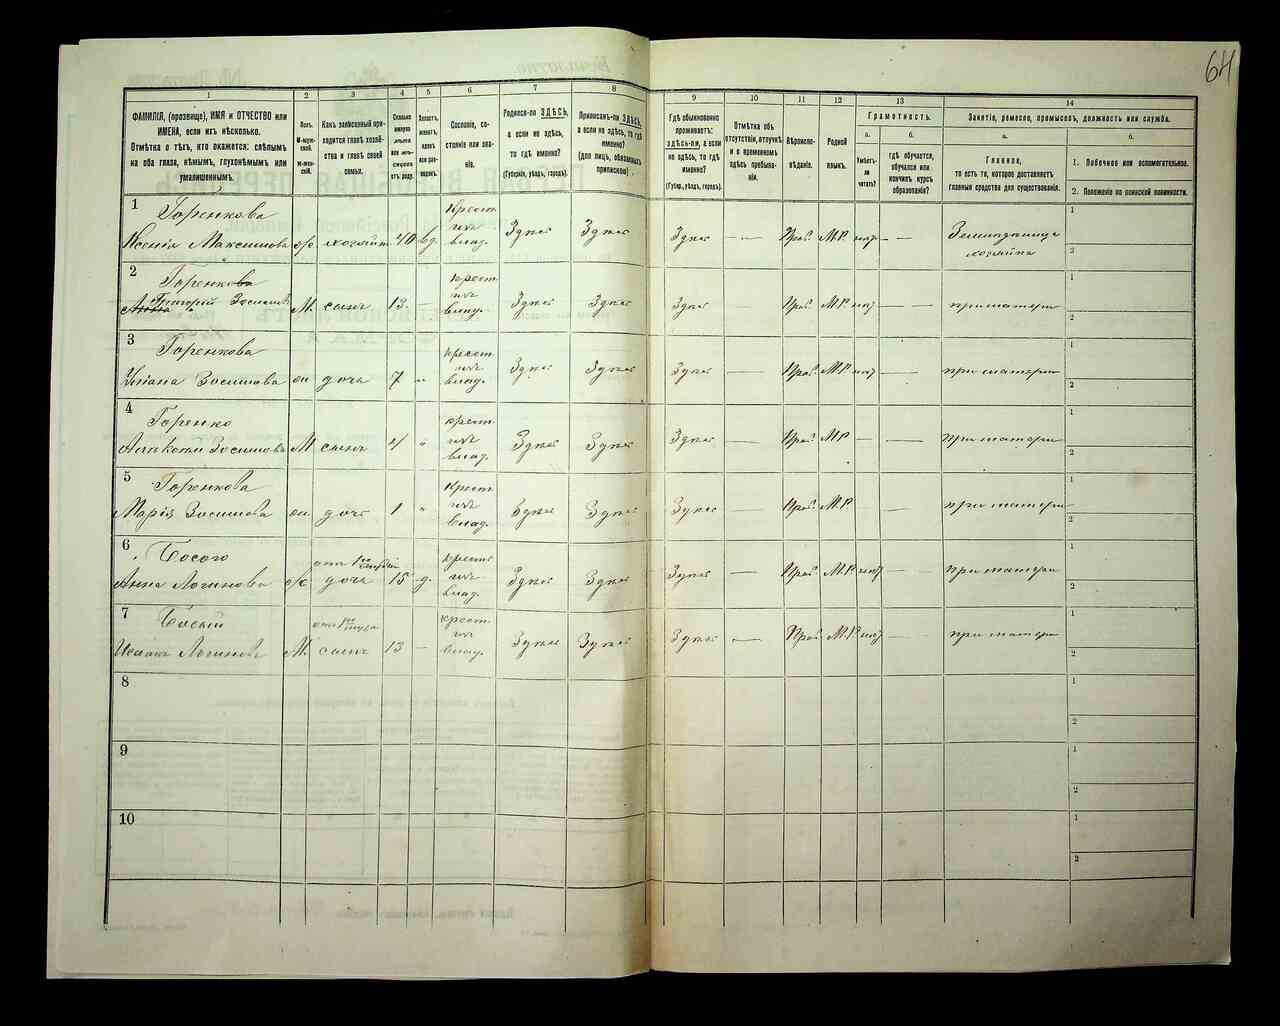 64
1
2
3
4
5
6
7
8
9
10
11
12
13
14
ФАМИЛІЯ, (прозвище), ИМЯ и ОТЧЕСТВО или
ИМЕНА, если ихъ нѣсколько.
Отмѣтка о тѣхъ, кто окажется: слѣпымъ
на оба глаза, нѣмымъ, глухонѣмымъ или
умалишеннымъ.
Полъ.
М-мужской.
Ж-женской.
Какъ записанный приходится главѣ хозяйства и главѣ своей
семьи.
Сколько
минуло
лѣтъ
отъ роду.
Холостъ,
женатъ,
вдовъ
Сословіе, состояніе или званіе.
Родился-ли ЗДѢСЬ,
а если не здѣсь,
то гдѣ именно?
(Губернія, уѣздъ, городъ).
Приписанъ-ли ЗДѢСЬ,
а если не здѣсь, то гдѣ
именно?
(для лицъ, обязанныхъ
припиской).
Гдѣ обыкновенно
проживаетъ:
здѣсь-ли, а если
не здѣсь, то гдѣ
именно?
(Губер., уѣздъ, городъ).
Отмѣтка объ
отсутствіи, отлучкѣ
и о временномъ
здѣсь пребываніи.
Вѣроисповѣданіе.
Родной
языкъ.
Грамотность.
а.
б.
Умѣетъ-ли
читать?
гдѣ обучается,
обучался или
кончилъ курсъ
образованія?
Занятіе, ремесло, промыселъ, должность или служба.
а.
б.
Главное,
то есть то, которое доставляетъ
главныя средства для существованія.
1. Побочное или вспомогательное.
2. Положеніе по воинской повинности.
1
Горенкова
Ксенія Максимова
хозяйка
40
вд.
Крест.
изъ
влад.
Здѣсь
Здѣсь
Здѣсь
—
Прав.
М.Р.
нѣт
—
хозяйка
1
2
2
Григорій
М.
сынъ
13
—
крест.
изъ
влад.
Здѣсь
Здѣсь
Здѣсь
—
Прав.
М.Р.
нѣт
—
при матери
1
2
3
Горенкова
Уліана Зосимова
дочь
7
крест.
изъ
влад.
Здѣсь
Здѣсь
Здѣсь
—
Прав.
М.Р.
нѣт
—
при матери
1
2
4
Горенко
Зосимовъ
М
сынъ
4
крест.
изъ
влад.
Здѣсь
Здѣсь
Здѣсь
—
Прав.
М.Р.
—
—
при матери
1
2
5
Горенкова
Марія Зосимова
дочь
1
Крест.
изъ
влад.
Здѣсь
Здѣсь
Здѣсь
—
Прав.
М.Р.
—
при матери
1
2
6
Босого
Анна Логинова
дочь
15
д.
крест.
изъ
влад.
Здѣсь
Здѣсь
Здѣсь
—
Прав.
М.Р.
нѣт
—
при матери
1
2
7
Босый
Логиновъ
М.
сынъ
13
—
крест.
изъ
влад.
Здѣсь
Здѣсь
Здѣсь
—
Прав.
М.Р.
нѣт
—
при матери
1
2
8
1
2
9
1
2
10
1
2